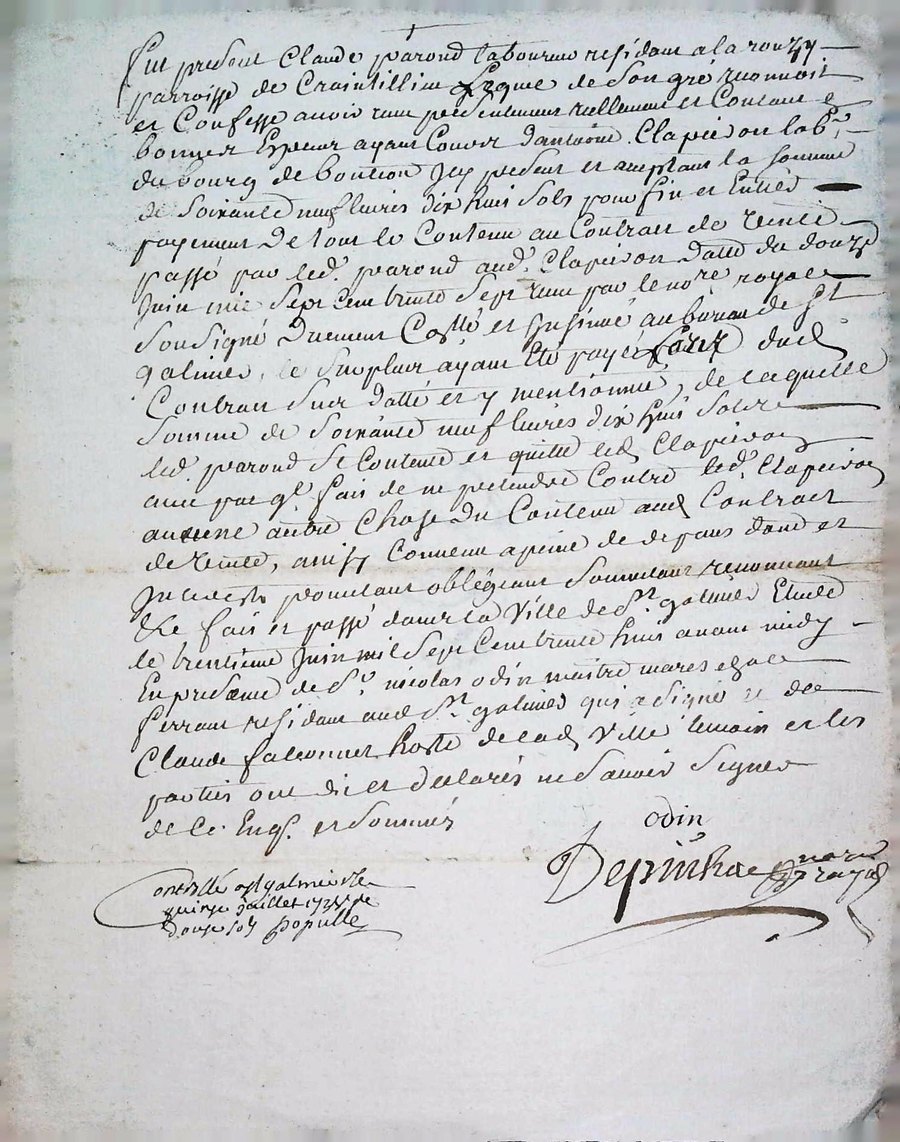 Fut present Claude parond laboureur residant a la ronzy
parroisse de Craintillieu Lequel de son gré reconnoit
et Confesse avoir reçu presentement reellement et Contant en
bonnes Especes ayant Cours d'antoine Clapeiron lab.r
du bourg de boution Icy present et acceptant la somme
de soixante neuf livres dix huit sols pour fin et Entier
payement De tout le Contenu au Contrat de vente
passé par led.t parond aud.t Clapeiron Datté du douze
Juin mil sept Cent trente sept reçu par le no.re royal
sousigné Duement Collé et Insinué au bureau de St
galmier, le surplus ayant Eté payé lors dud
Contrat sus datté et y mentionné, de laquelle
somme de soixante neuf livres dix huit sols
led.t parond se Contente et quitte led Clapeiron
avec pac.q.t fait de ne pretendre Contre led.t Clapeiron
aucune autre Chose du Contenu aud Contract
de vente, ainsy Convenu a peine de depans dom et
Interests promettant obligeant soumettant renonçant
&c fait et passé dans la Ville de St galmier Etude
le trentieme Juin mil sept Cent trente huit avant midy
En presence de S.r nicolas odin maitre mareschal
ferrant residant aud St galmier qui a signé et de
Claude falconnet hoste de lad Ville temoin et les
parties ont dit et declarés ne savoir signer
de Ce Enq.s et sommés
odin
Depinhac no.re royal
Controllé a St galmier le
quinze juillet 1738 re
douze sols populle